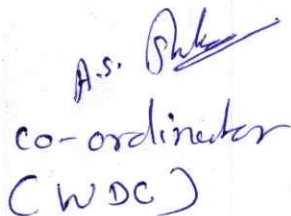 A.S.
co-ordinator
(WDC)